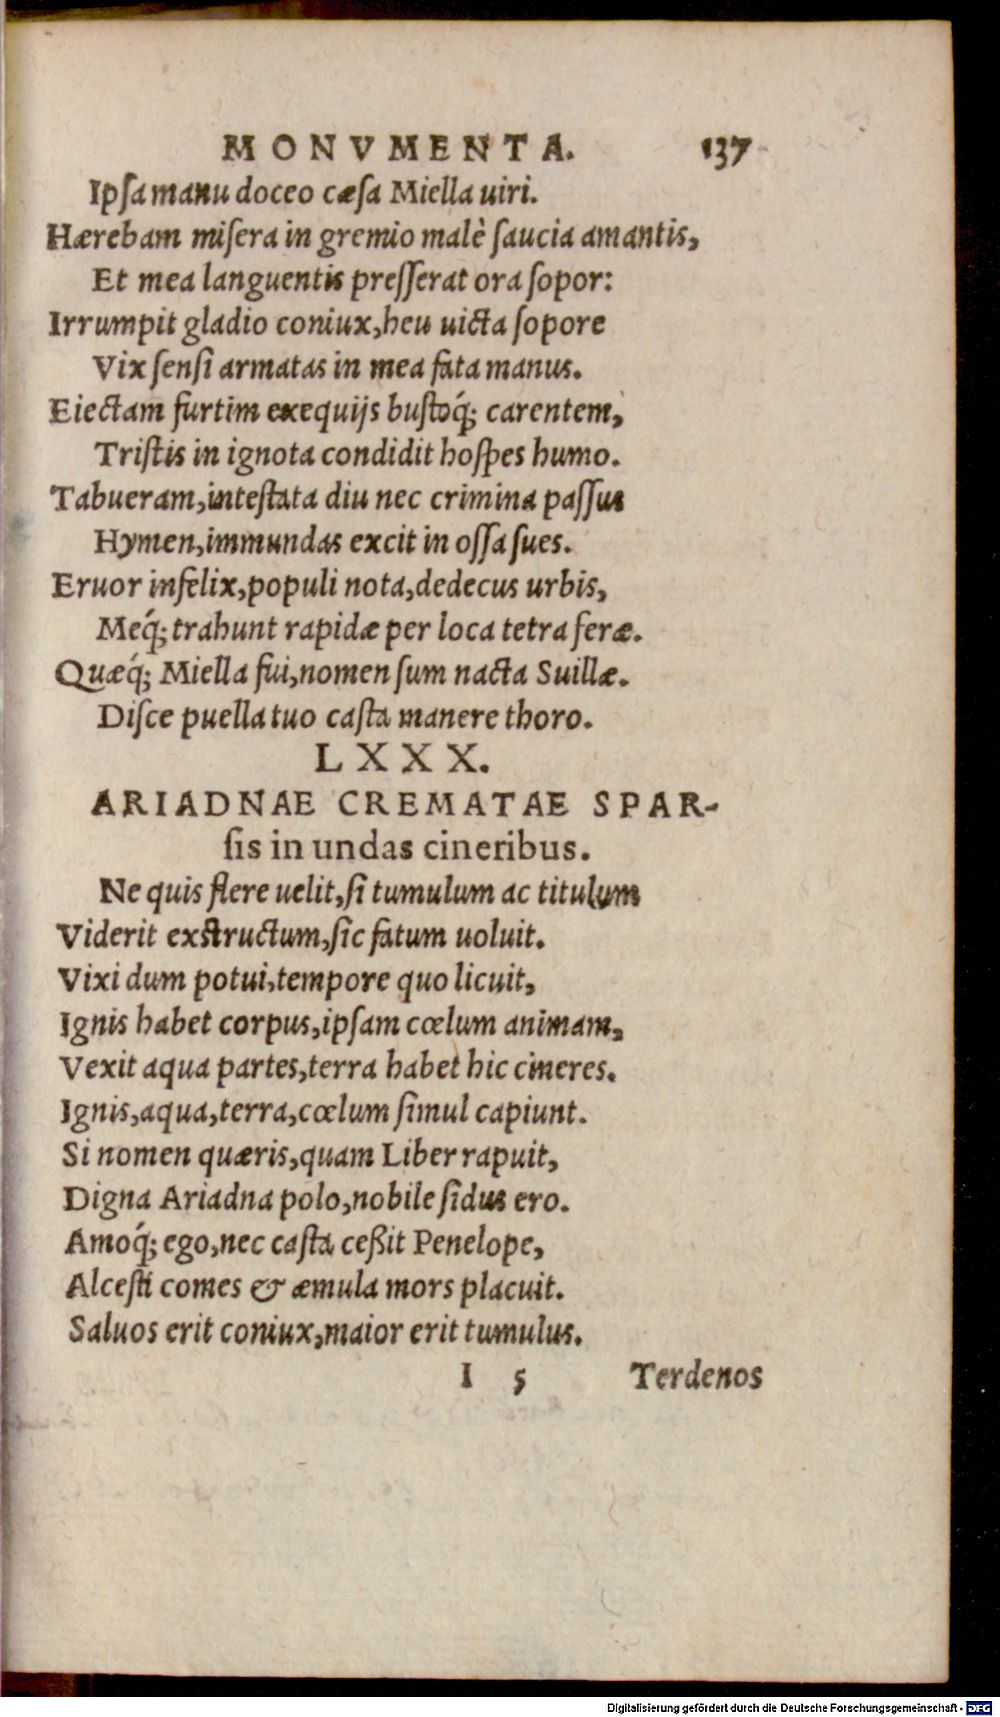 MONVMENTA. 137
Ipſa manu doceo cæſa Miella uiri.
Hærebam miſera in gremio malè ſaucia amantis,
Et mea languentis preſſerat ora ſopor:
Irrumpit gladio coniux, heu uicta ſopore
Vix ſenſi armatas in mea fata manus.
Eiectam furtim exequijs buſtoq́; carentem,
Triſtis in ignota condidit hoſpes humo.
Tabueram, inteſtata diu nec crimina paſſus
Hymen, immundas excit in oſſa ſues.
Eruor infelix, populi nota, dedecus urbis,
Meq́; trahunt rapidæ per loca tetra feræ.
Quæq́; Miella fui, nomen ſum nacta Suillæ.
Diſce puella tuo caſta manere thoro.
LXXX.
ARIADNAE CREMATAE SPAR-
ſis in undas cineribus.
Ne quis flere uelit, ſi tumulum ac titulum
Viderit exſtructum, ſic fatum uoluit.
Vixi dum potui, tempore quo licuit,
Ignis habet corpus, ipſam cœlum animam,
Vexit aqua partes, terra habet hic cineres.
Ignis, aqua, terra, cœlum ſimul capiunt.
Si nomen quæris, quam Liber rapuit,
Digna Ariadna polo, nobile ſidus ero.
Amoq́; ego, nec caſta ceßit Penelope,
Alceſti comes & æmula mors placuit.
Saluos erit coniux, maior erit tumulus.
I 5 Terdenos
Digitalisierung gefördert durch die Deutsche Forschungsgemeinschaft - DFG